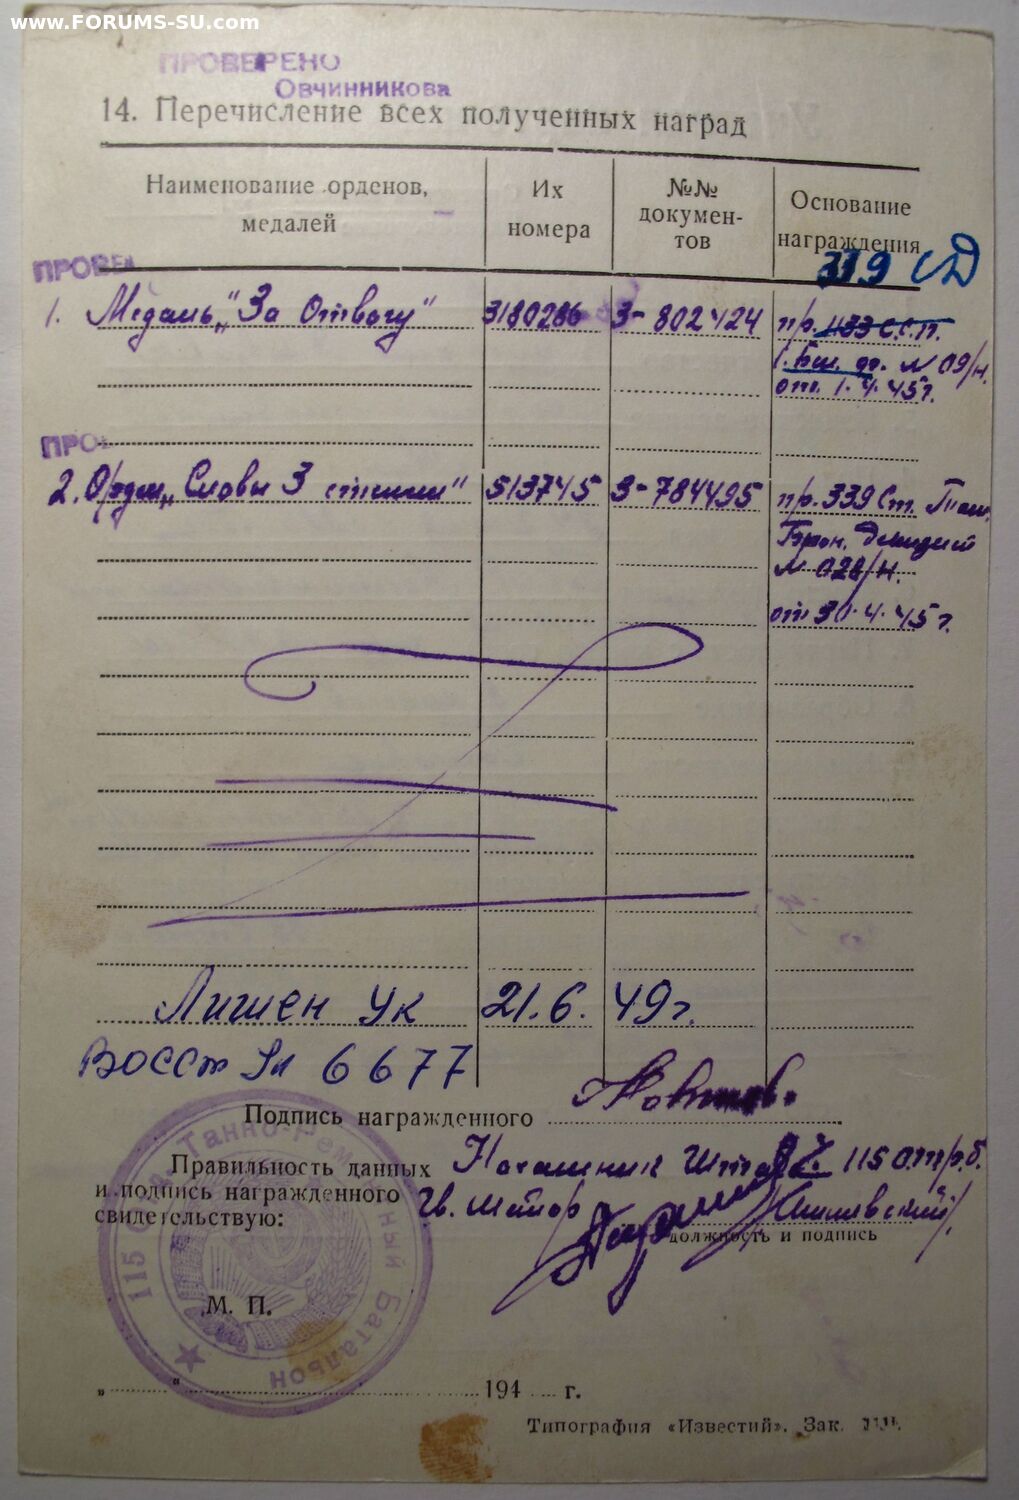 www.FORUMS-SU.com
ПРОВЕРЕНО
Овчинникова
14. Перечисление всех полученных наград
Наименование орденов, медалей
Их номера
№№ докумен-тов
Основание награждения
339
ПРОВЕ
1. Медаль „За Отвагу" 3180286 З-802424 пр. 1133 С.С.П.
№ 09/н.
от 1.4.45г.
ПРО
2. Орден „Славы 3 степени" 513745 З-784495 пр. 339 Ст.
№ 028/н.
от 30.4.45г.
Лишен Ук 21.6.49г.
Восст Ул 6677
Подпись награжденного
Правильность данных
и подпись награжденного
свидетельствую:
Начальник Штаба 115 отрб.
Гв. Майор
должность и подпись
115 Отд. Танко-Ремонтный Батальон
М. П.
„ “ 194 г.
Типография «Известий». Зак.